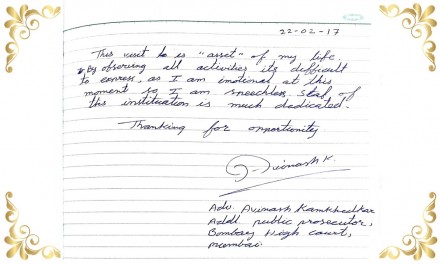 22-02-17
This visit to is "asset" of my life.
By observing all activities its difficult
to express, as I am imotional at this
moment so I am speechless. Staf of
this instituation is much dedicated.
Thanking for opportunity
Avinash K.
Adv. Avinash Kamkhedkar
Addl. public prosecutor,
Bombay High court,
mumbai.